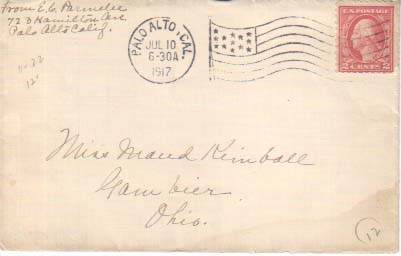 From E. C. Parmelee
723 Hamilton Ave.
Palo Alto Calif.
PALO ALTO, CAL.
JUL 10
6-30A
1917
U.S. POSTAGE
2 CENTS 2
11-22
12'
Miss Maud Kimball
Gambier.
Ohio.
12